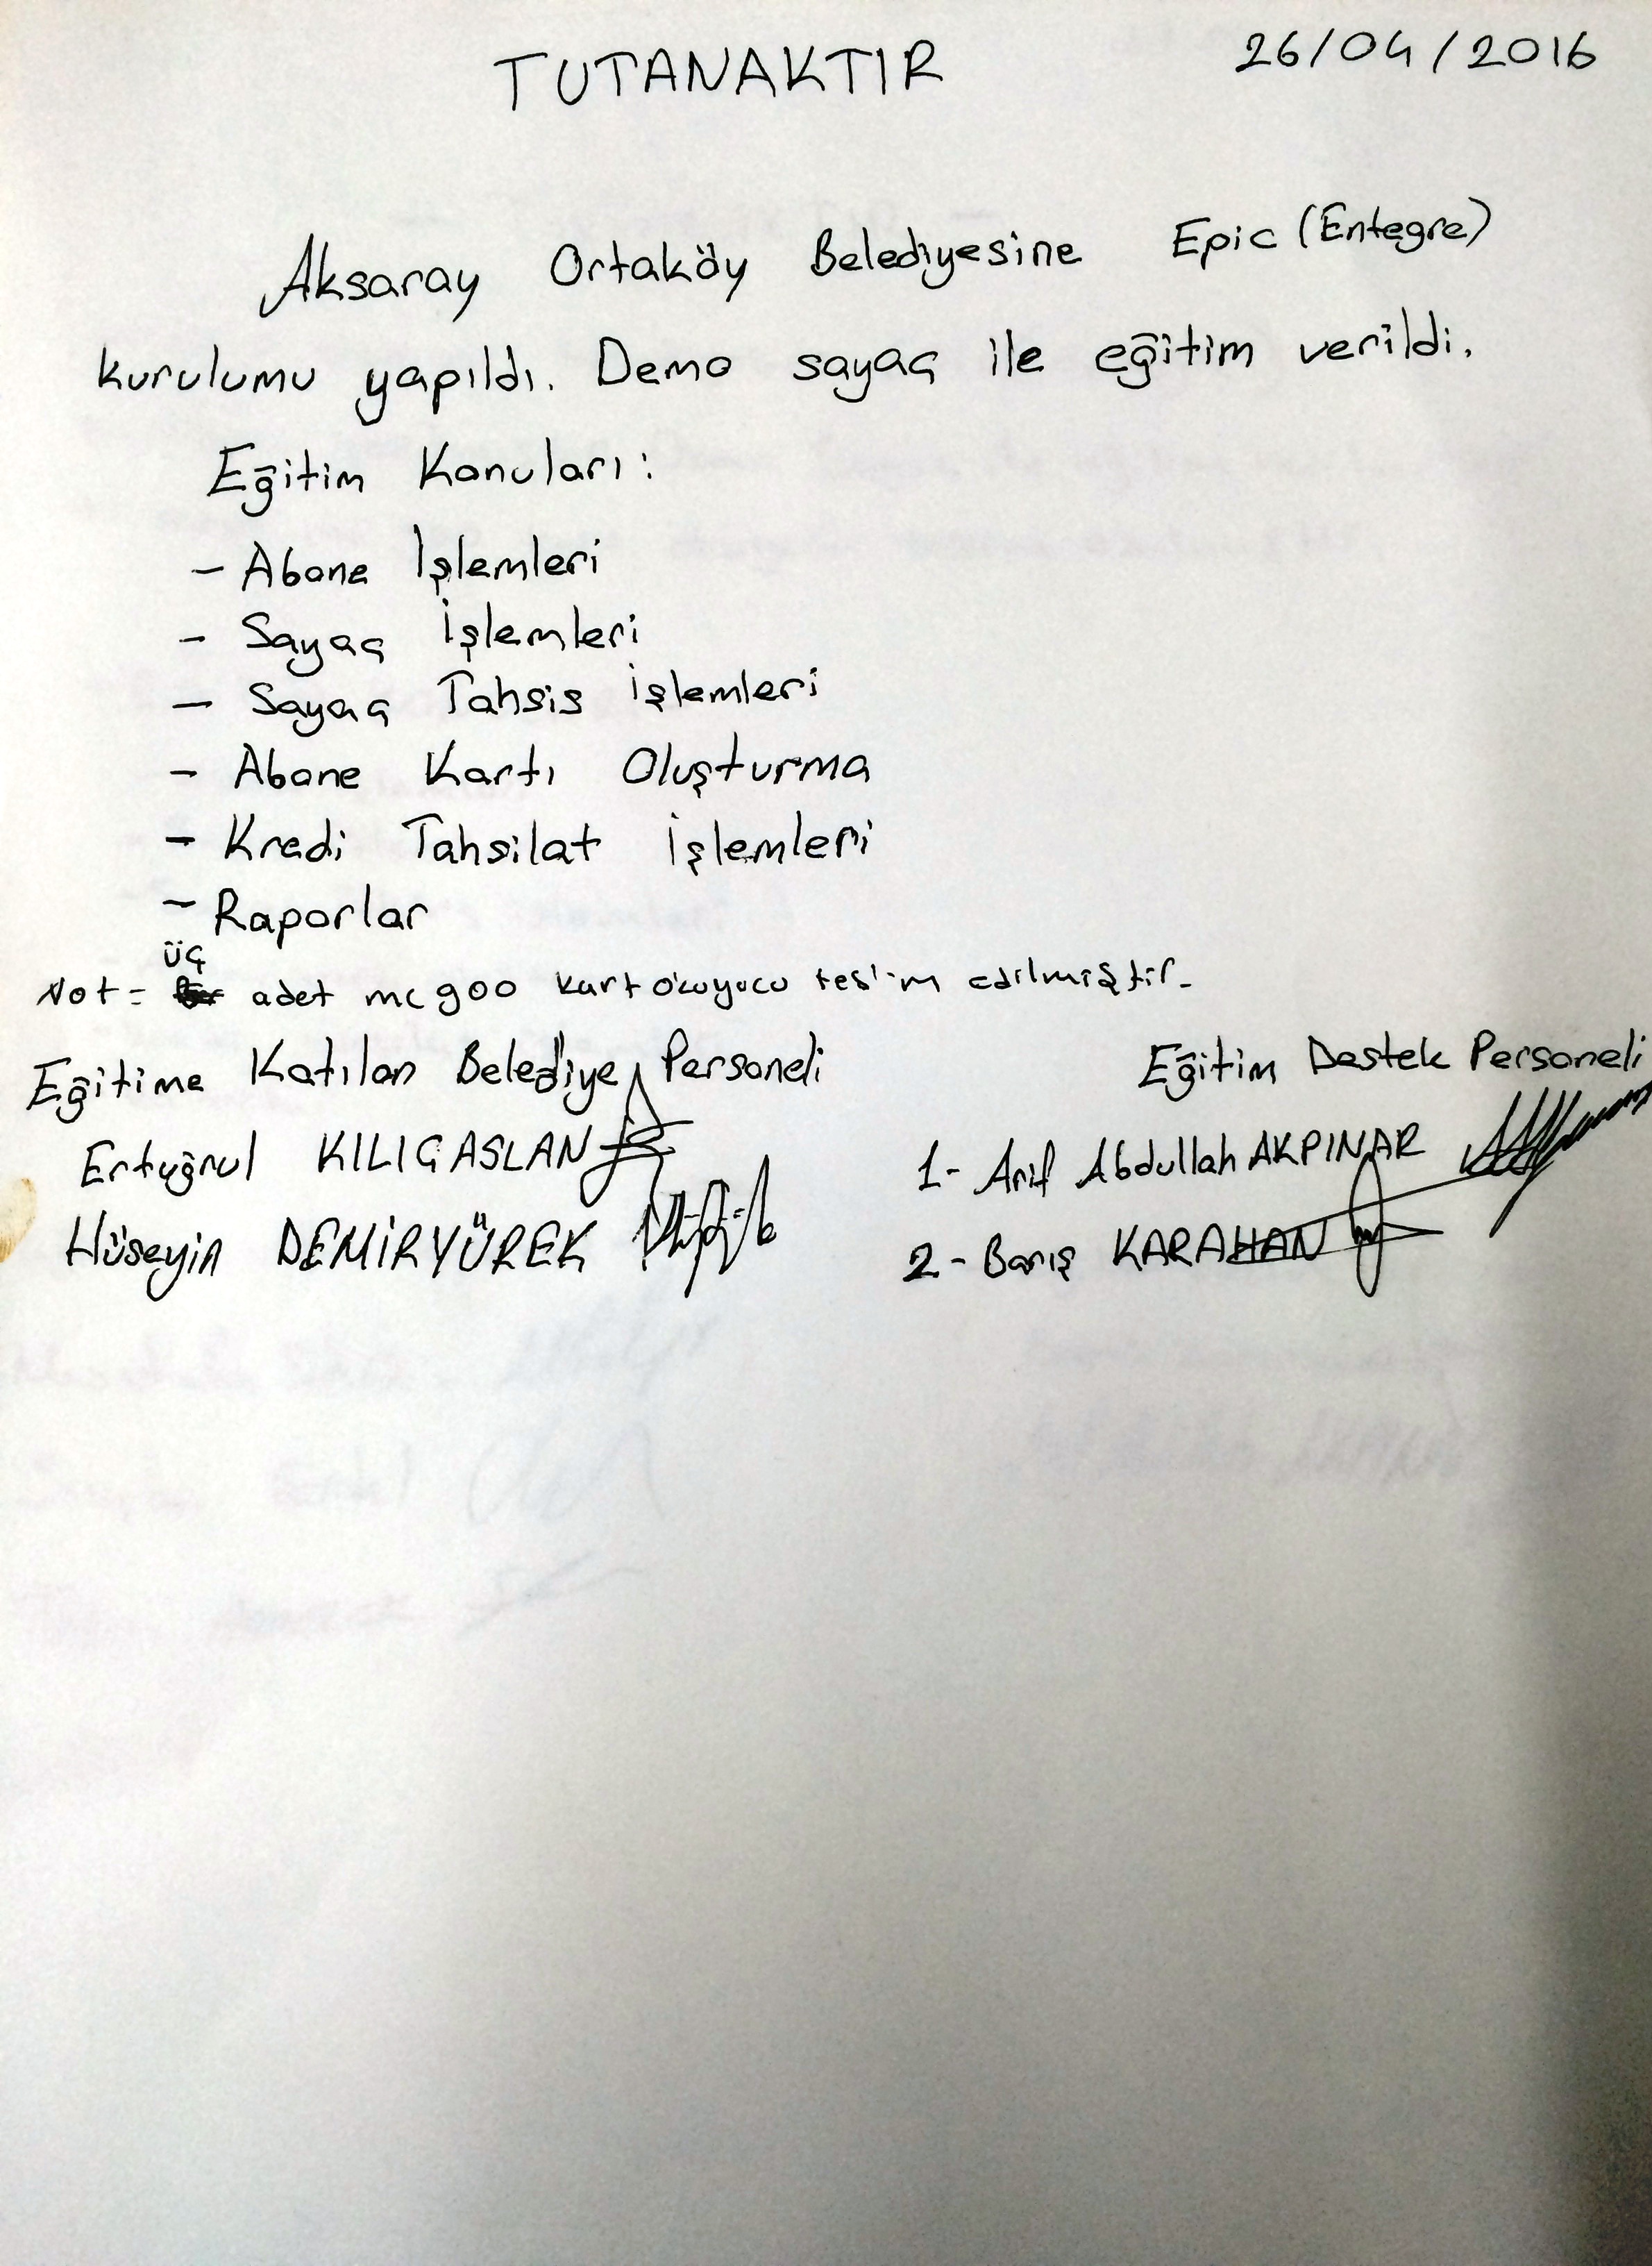 TUTANAKTIR 26/04/2016
Aksaray Ortaköy Belediyesine Epic (Entegre)
kurulumu yapıldı. Demo sayaç ile eğitim verildi.
Eğitim Konuları:
- Abone İşlemleri
- Sayaç İşlemleri
- Sayaç Tahsis işlemleri
- Abone Kartı Oluşturma
- Kredi Tahsilat işlemleri
- Raporlar
üç
Not = adet mc900 kart okuyucu teslim edilmiştir.
Eğitime Katılan Belediye Personeli Eğitim Destek Personeli
Ertuğrul KILIÇASLAN 1- Arif Abdullah AKPINAR
Hüseyin DEMİRYÜREK 2- Barış KARAHAN